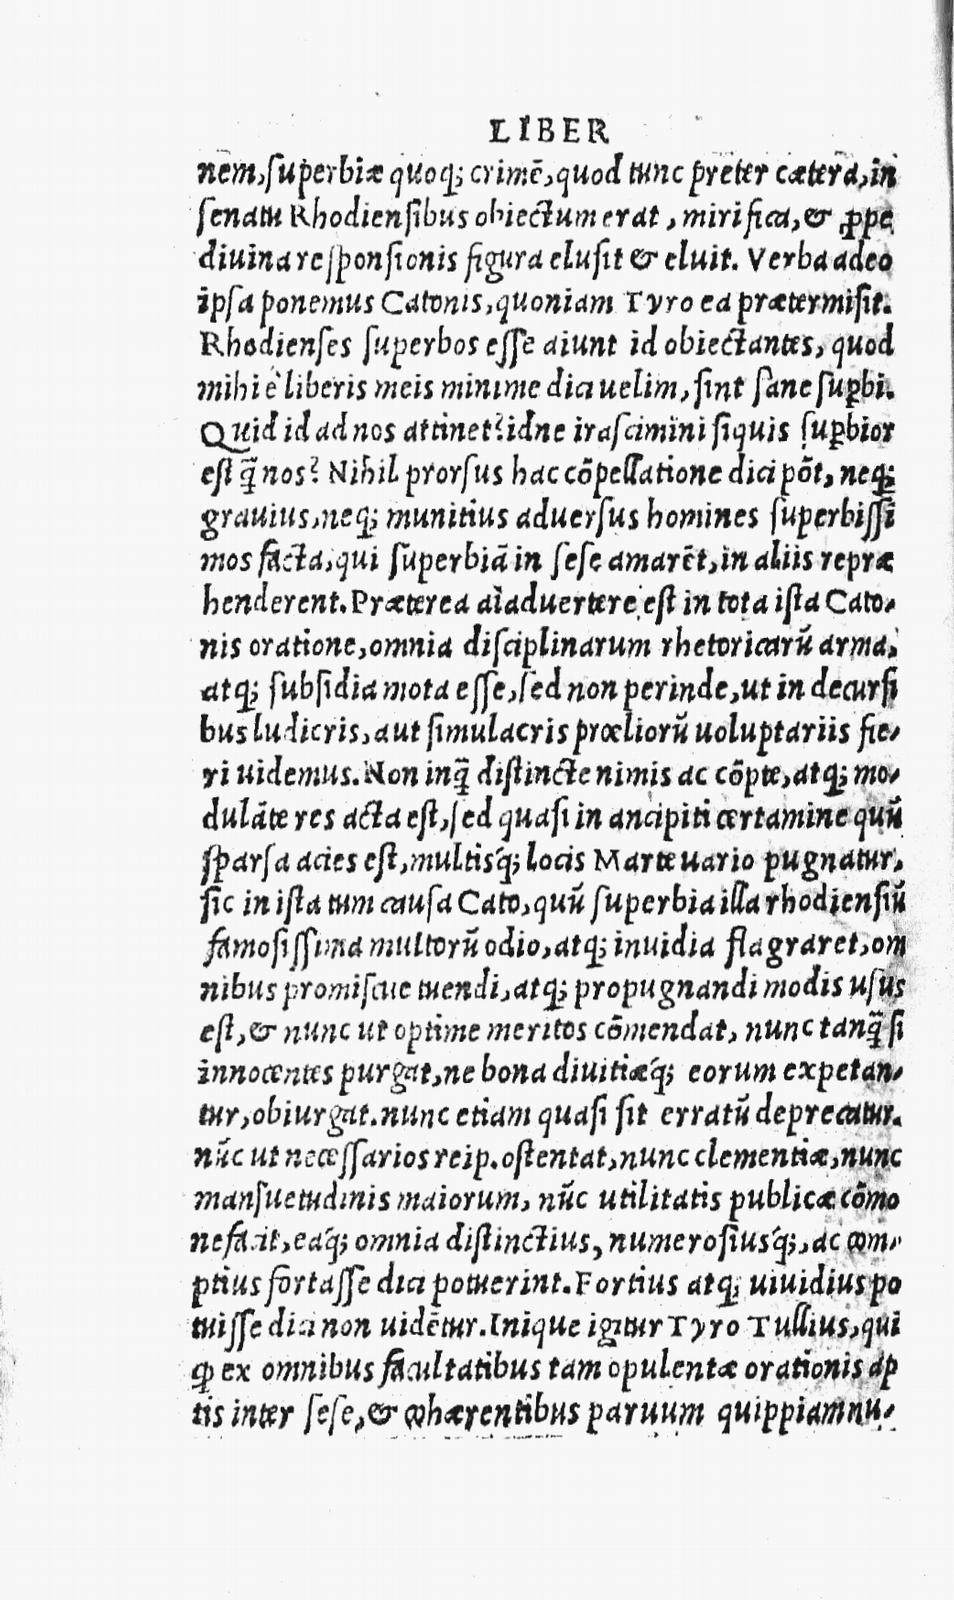 LIBER
nem, superbiæ quoq; crimē, quod tunc preter cætera, in
senatu Rhodiensibus obiectum erat, mirifica, & ꝓpe
diuina responsionis figura elusit & eluit. Verba adeo
ipsa ponemus Catonis, quoniam Tyro ea prætermisit.
Rhodienses superbos esse aiunt id obiectantes, quod
mihi è liberis meis minime dici uelim, sint sane suꝑbi.
Quid id ad nos attinet? idne irascimini siquis suꝑbior
est q̃ nos? Nihil prorsus hac cōpellatione dici pōt, neq;
grauius, neq; munitius aduersus homines superbissi
mos facta, qui superbiā in sese amarēt, in aliis repræ
henderent. Præterea aīaduertere est in tota ista Cato-
nis oratione, omnia disciplinarum rhetoricarū arma,
atq; subsidia mota esse, sed non perinde, ut in decursi
bus ludicris, aut simulacris prœliorū uoluptariis fie-
ri uidemus. Non inq̃ distincte nimis ac cōpte, atq; mo-
dulāte res acta est, sed quasi in ancipiti certamine quū
sparsa acies est, multisq́; locis Marte uario pugnatur,
sic in ista tum causa Cato, quū superbia illa rhodiensiū
famosissima multorū odio, atq; inuidia flagraret, om
nibus promiscue tuendi, atq; propugnandi modis usus
est, & nunc ut optime meritos cōmendat, nunc tanq̃ si
innocentes purgat, ne bona diuitiæq́; eorum expetan-
tur, obiurgat. nunc etiam quasi sit erratū deprecatur.
nūc ut necessarios reip. ostentat, nunc clementiæ, nunc
mansuetudinis maiorum, nūc utilitatis publicæ cōmo
nefacit, eaq́; omnia distinctius, numerosiusq́;, ac com-
ptius fortasse dici potuerint. Fortius atq; uiuidius po
tuisse dici non uidētur. Inique igitur Tyro Tullius, qui
ꝙ ex omnibus facultatibus tam opulentæ orationis ap
tis inter sese, & cohærentibus paruum quippiam nu-